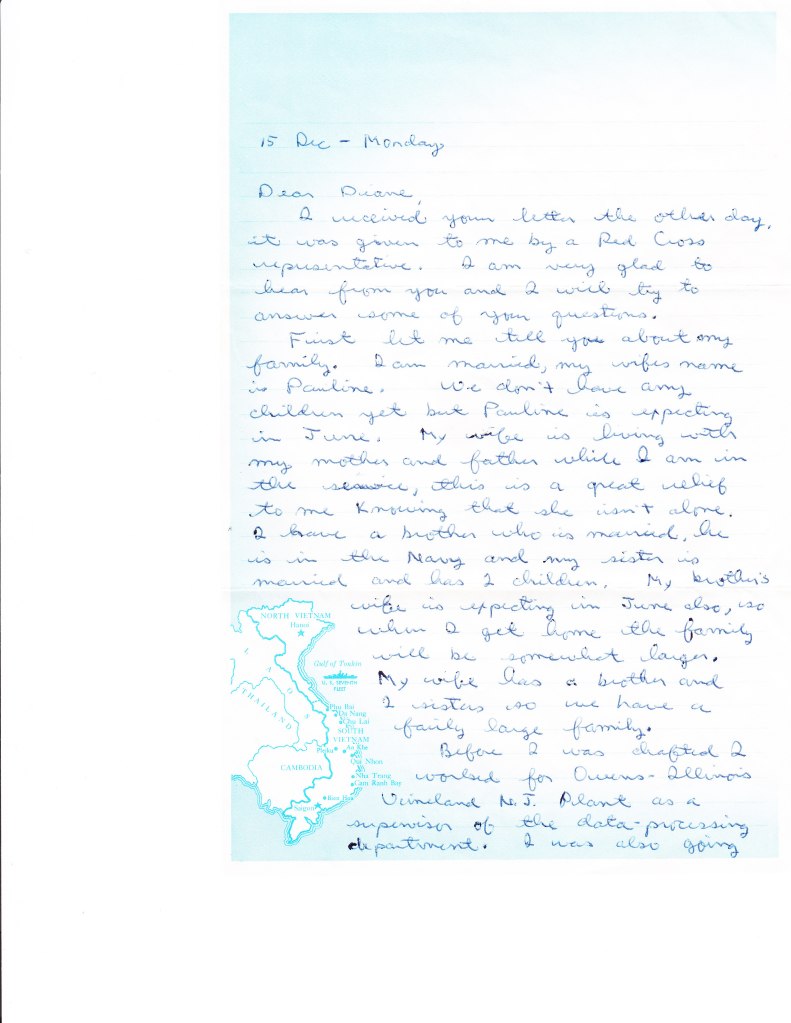 15 Dec - Monday
Dear Diane,
I received your letter the other day,
it was given to me by a Red Cross
representative. I am very glad to
hear from you and I will try to
answer some of your questions.
First let me tell you about my
family. I am married, my wifes name
is Pauline. We don't have any
children yet but Pauline is expecting
in June. My wife is living with
my mother and father while I am in
the service, this is a great relief
to me knowing that she isn't alone.
I have a brother who is married, he
is in the Navy and my sister is
married and has 2 children. My brother's
wife is expecting in June also, so
when I get home the family
will be somewhat larger.
My wife has a brother and
2 sisters so we have a
fairly large family.
Before I was drafted I
worked for Owens-Illinois
Vineland N.J. Plant as a
supervisor of the data-processing
department. I was also going
NORTH VIETNAM
Hanoi
LAOS
Gulf of Tonkin
U. S. SEVENTH
FLEET
THAILAND
Phu Bai
Da Nang
Chu Lai
SOUTH
VIETNAM
Pleiku
An Khe
Qui Nhon
CAMBODIA
Nha Trang
Cam Ranh Bay
Bien Hoa
Saigon